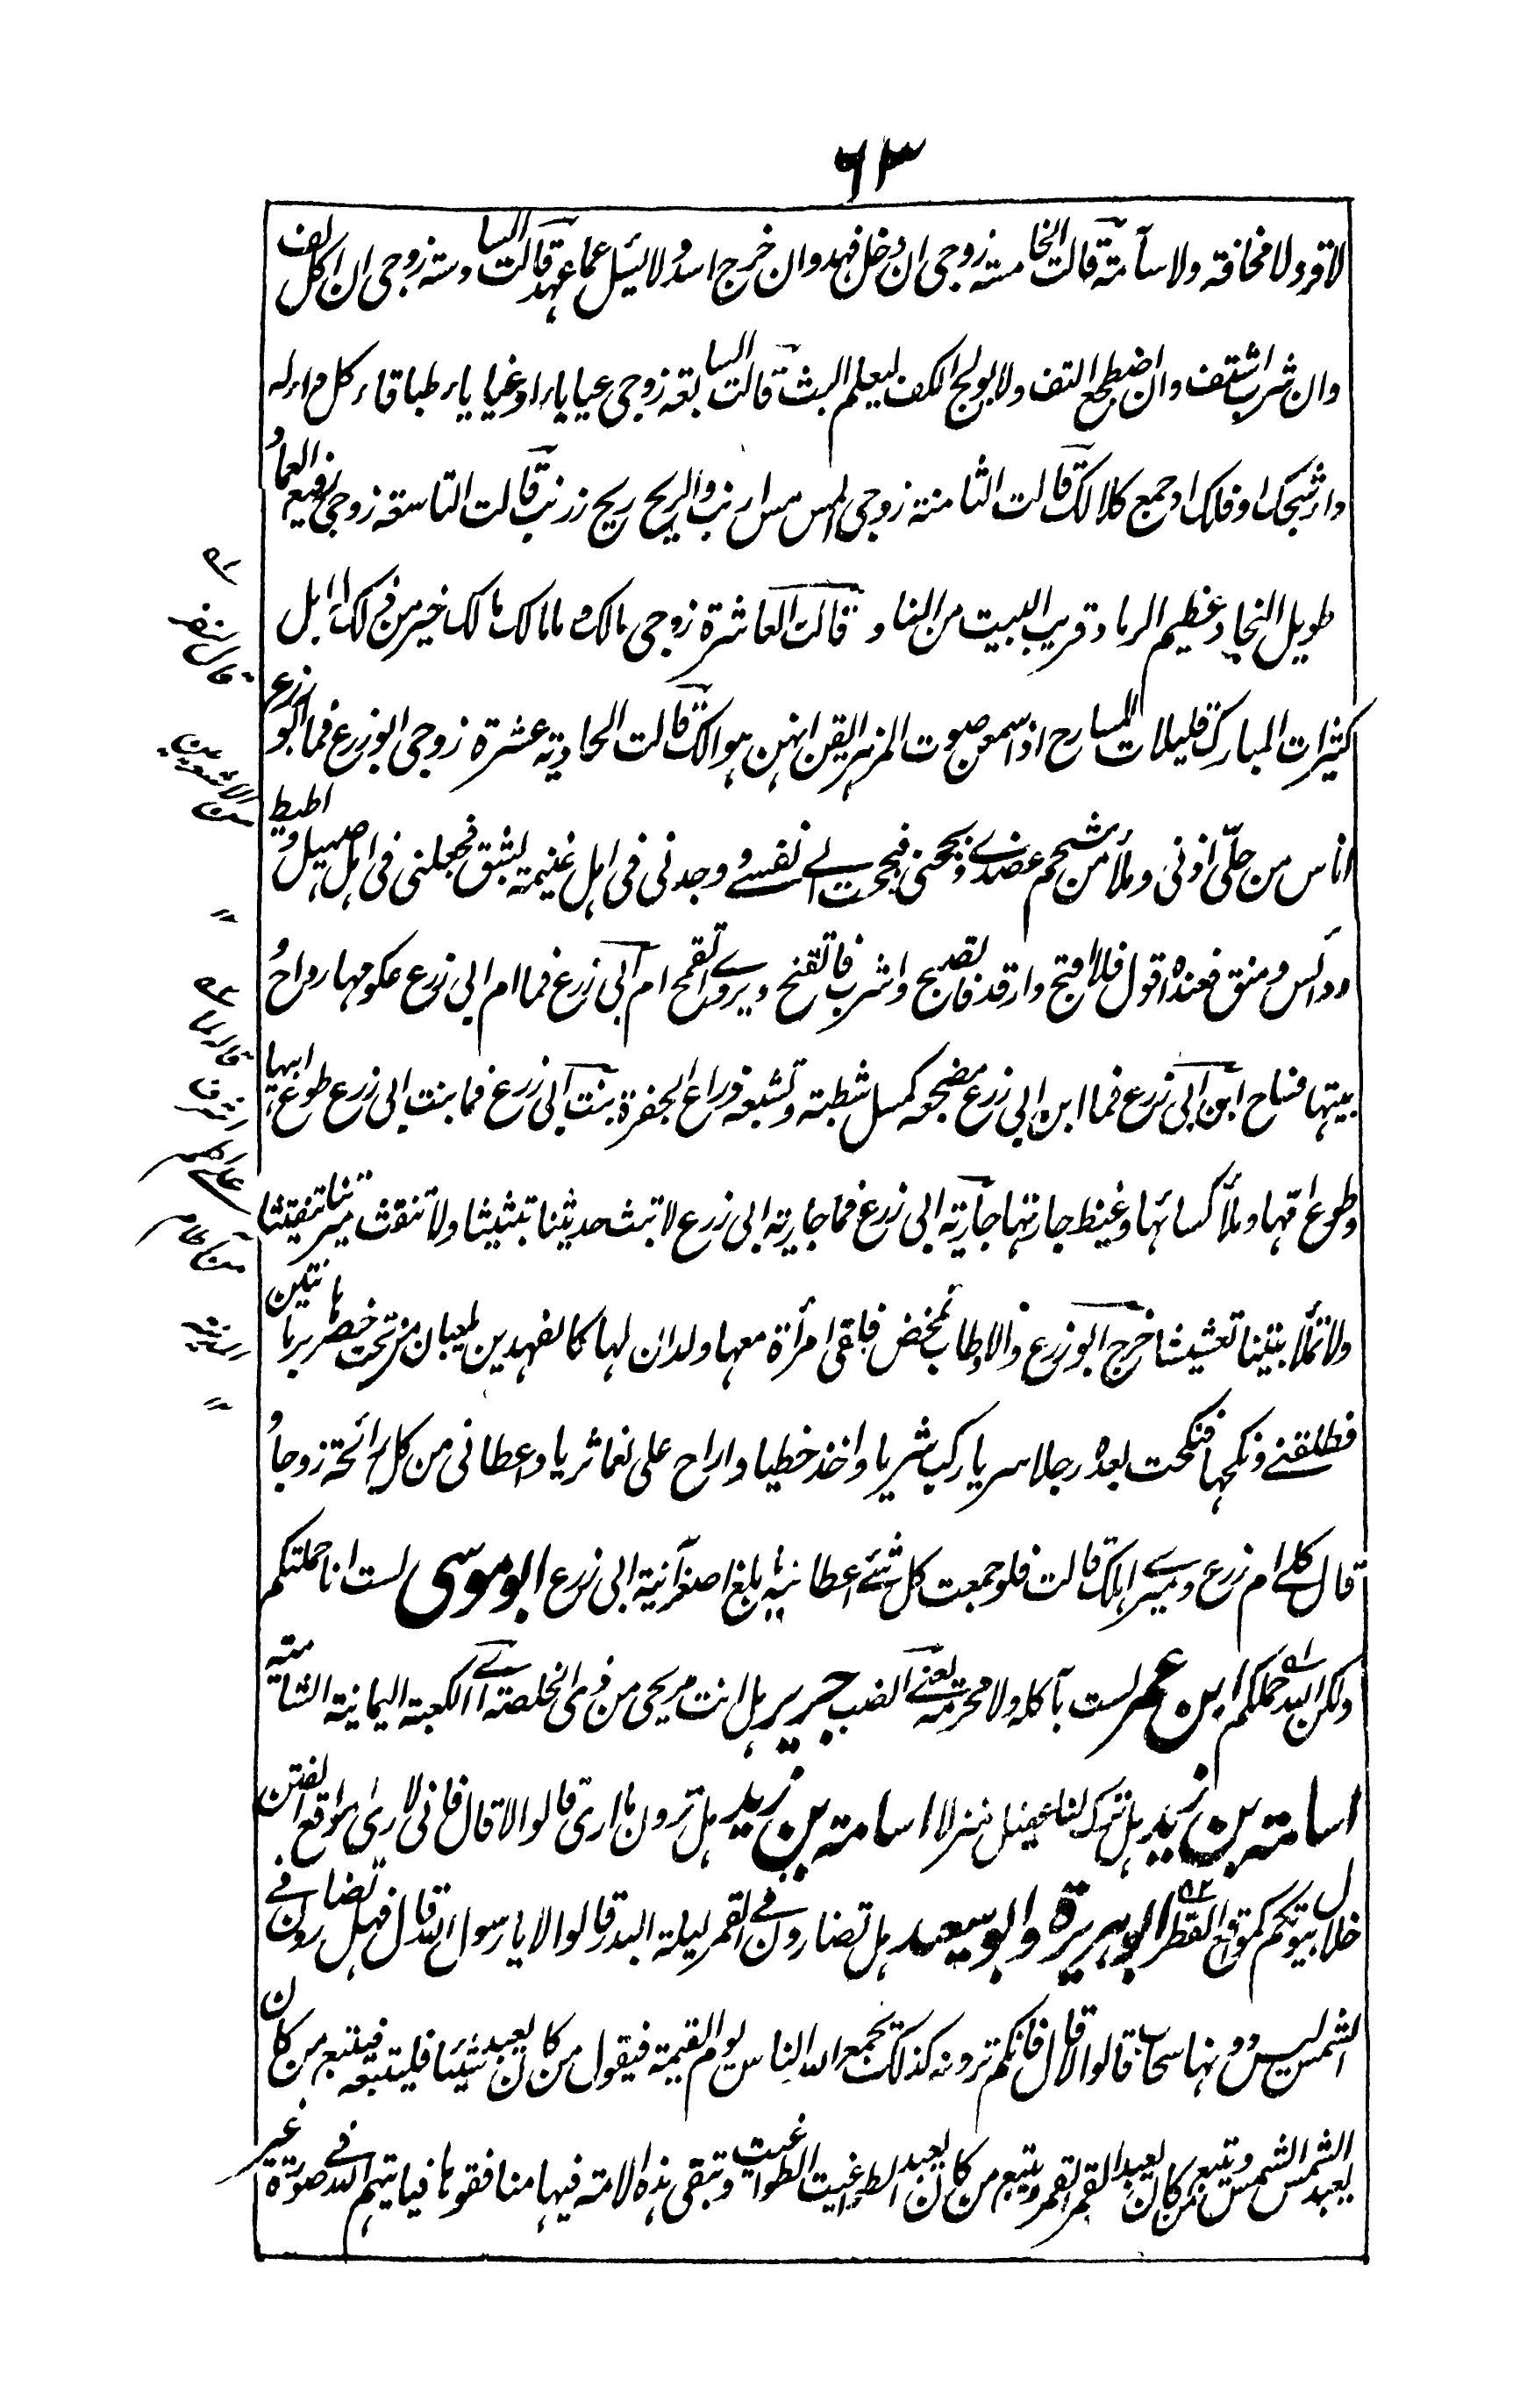 ٦٣
لا قر ولا مخافة ولا سآمة قالت الخامسة زوجي ان دخل فهد وان خرج اسد ولا يسئل عما عهد قالت السادسة زوجي ان اكل لف
وان شرب اشتف وان اضطجع التف ولا يولج الكف ليعلم البث قالت السابعة زوجي عياياء او غياياء طباقاء كل داء له
داء شجك او فلك او جمع كلا لك قالت الثامنة زوجي المس مس ارنب والريح ريح زرنب قالت التاسعة زوجي رفيع العماد
طويل النجاد عظيم الرماد قريب البيت من الناد قالت العاشرة زوجي مالك وما مالك مالك خير من ذلك له ابل
كثيرات المبارك قليلات المسارح اذا سمعن صوت المزهر ايقن انهن هوالك قالت الحادية عشرة زوجي ابو زرع فما ابو زرع
اناس من حلي اذني وملأ من شحم عضدي وبجحني فبجحت الي نفسي وجدني في اهل غنيمة بشق فجعلني في اهل صهيل واطيط
ودائس ومنق فعنده اقول فلا اقبح وارقد فاتصبح واشرب فاتقنح ويروى اتقمح ام ابي زرع فما ام ابي زرع عكومها رداح و
بيتها فساح ابن ابي زرع فما ابن ابي زرع مضجعه كمسل شطبة وتشبعه ذراع الجفرة بنت ابي زرع فما بنت ابي زرع طوع ابيها
وطوع امها وملأ كسائها وغيظ جارتها جارية ابي زرع فما جارية ابي زرع لا تبث حديثنا تبثيثا ولا تنقث ميرتنا تنقيثا
ولا تملأ بيتنا تعشيشا خرج ابو زرع والاوطاب تمخض فلقي امرأة معها ولدان لها كالفهدين يلعبان من تحت خصرها برمانتين
فطلقني ونكحها فنكحت بعده رجلا سريا ركب شريا واخذ خطيا واراح علي نعما ثريا واعطاني من كل رائحة زوجا و
قال كلي ام زرع وميري اهلك قالت فلو جمعت كل شئ اعطانيه ما بلغ اصغر آنية ابي زرع ابو موسى لست انا حملتكم
ولكن الله حملكم ابن عمر لست بآكله ولا محرمه يعني الضب جرير هل انت مريحي من ذي الخلصة اي الكعبة اليمانية الشامية
اسامة بن زيد هل ترك لنا عقيل منزلا اسامة بن زيد هل ترون ما ارى قالوا لا قال فاني لارى مواقع الفتن
خلال بيوتكم كمواقع القطر ابو هريرة وابو سعيد هل تضارون في القمر ليلة البدر قالوا لا يا رسول الله قال فهل تضارون في
الشمس ليس دونها سحاب قالوا لا قال فانكم ترونه كذلك يجمع الله الناس يوم القيمة فيقول من كان يعبد شيئا فليتبعه فيتبع من كان
يعبد الشمس الشمس ويتبع من كان يعبد القمر القمر ويتبع من كان يعبد الطواغيت الطواغيت وتبقى هذه الامة فيها منافقوها فياتيهم الله في صورة غير